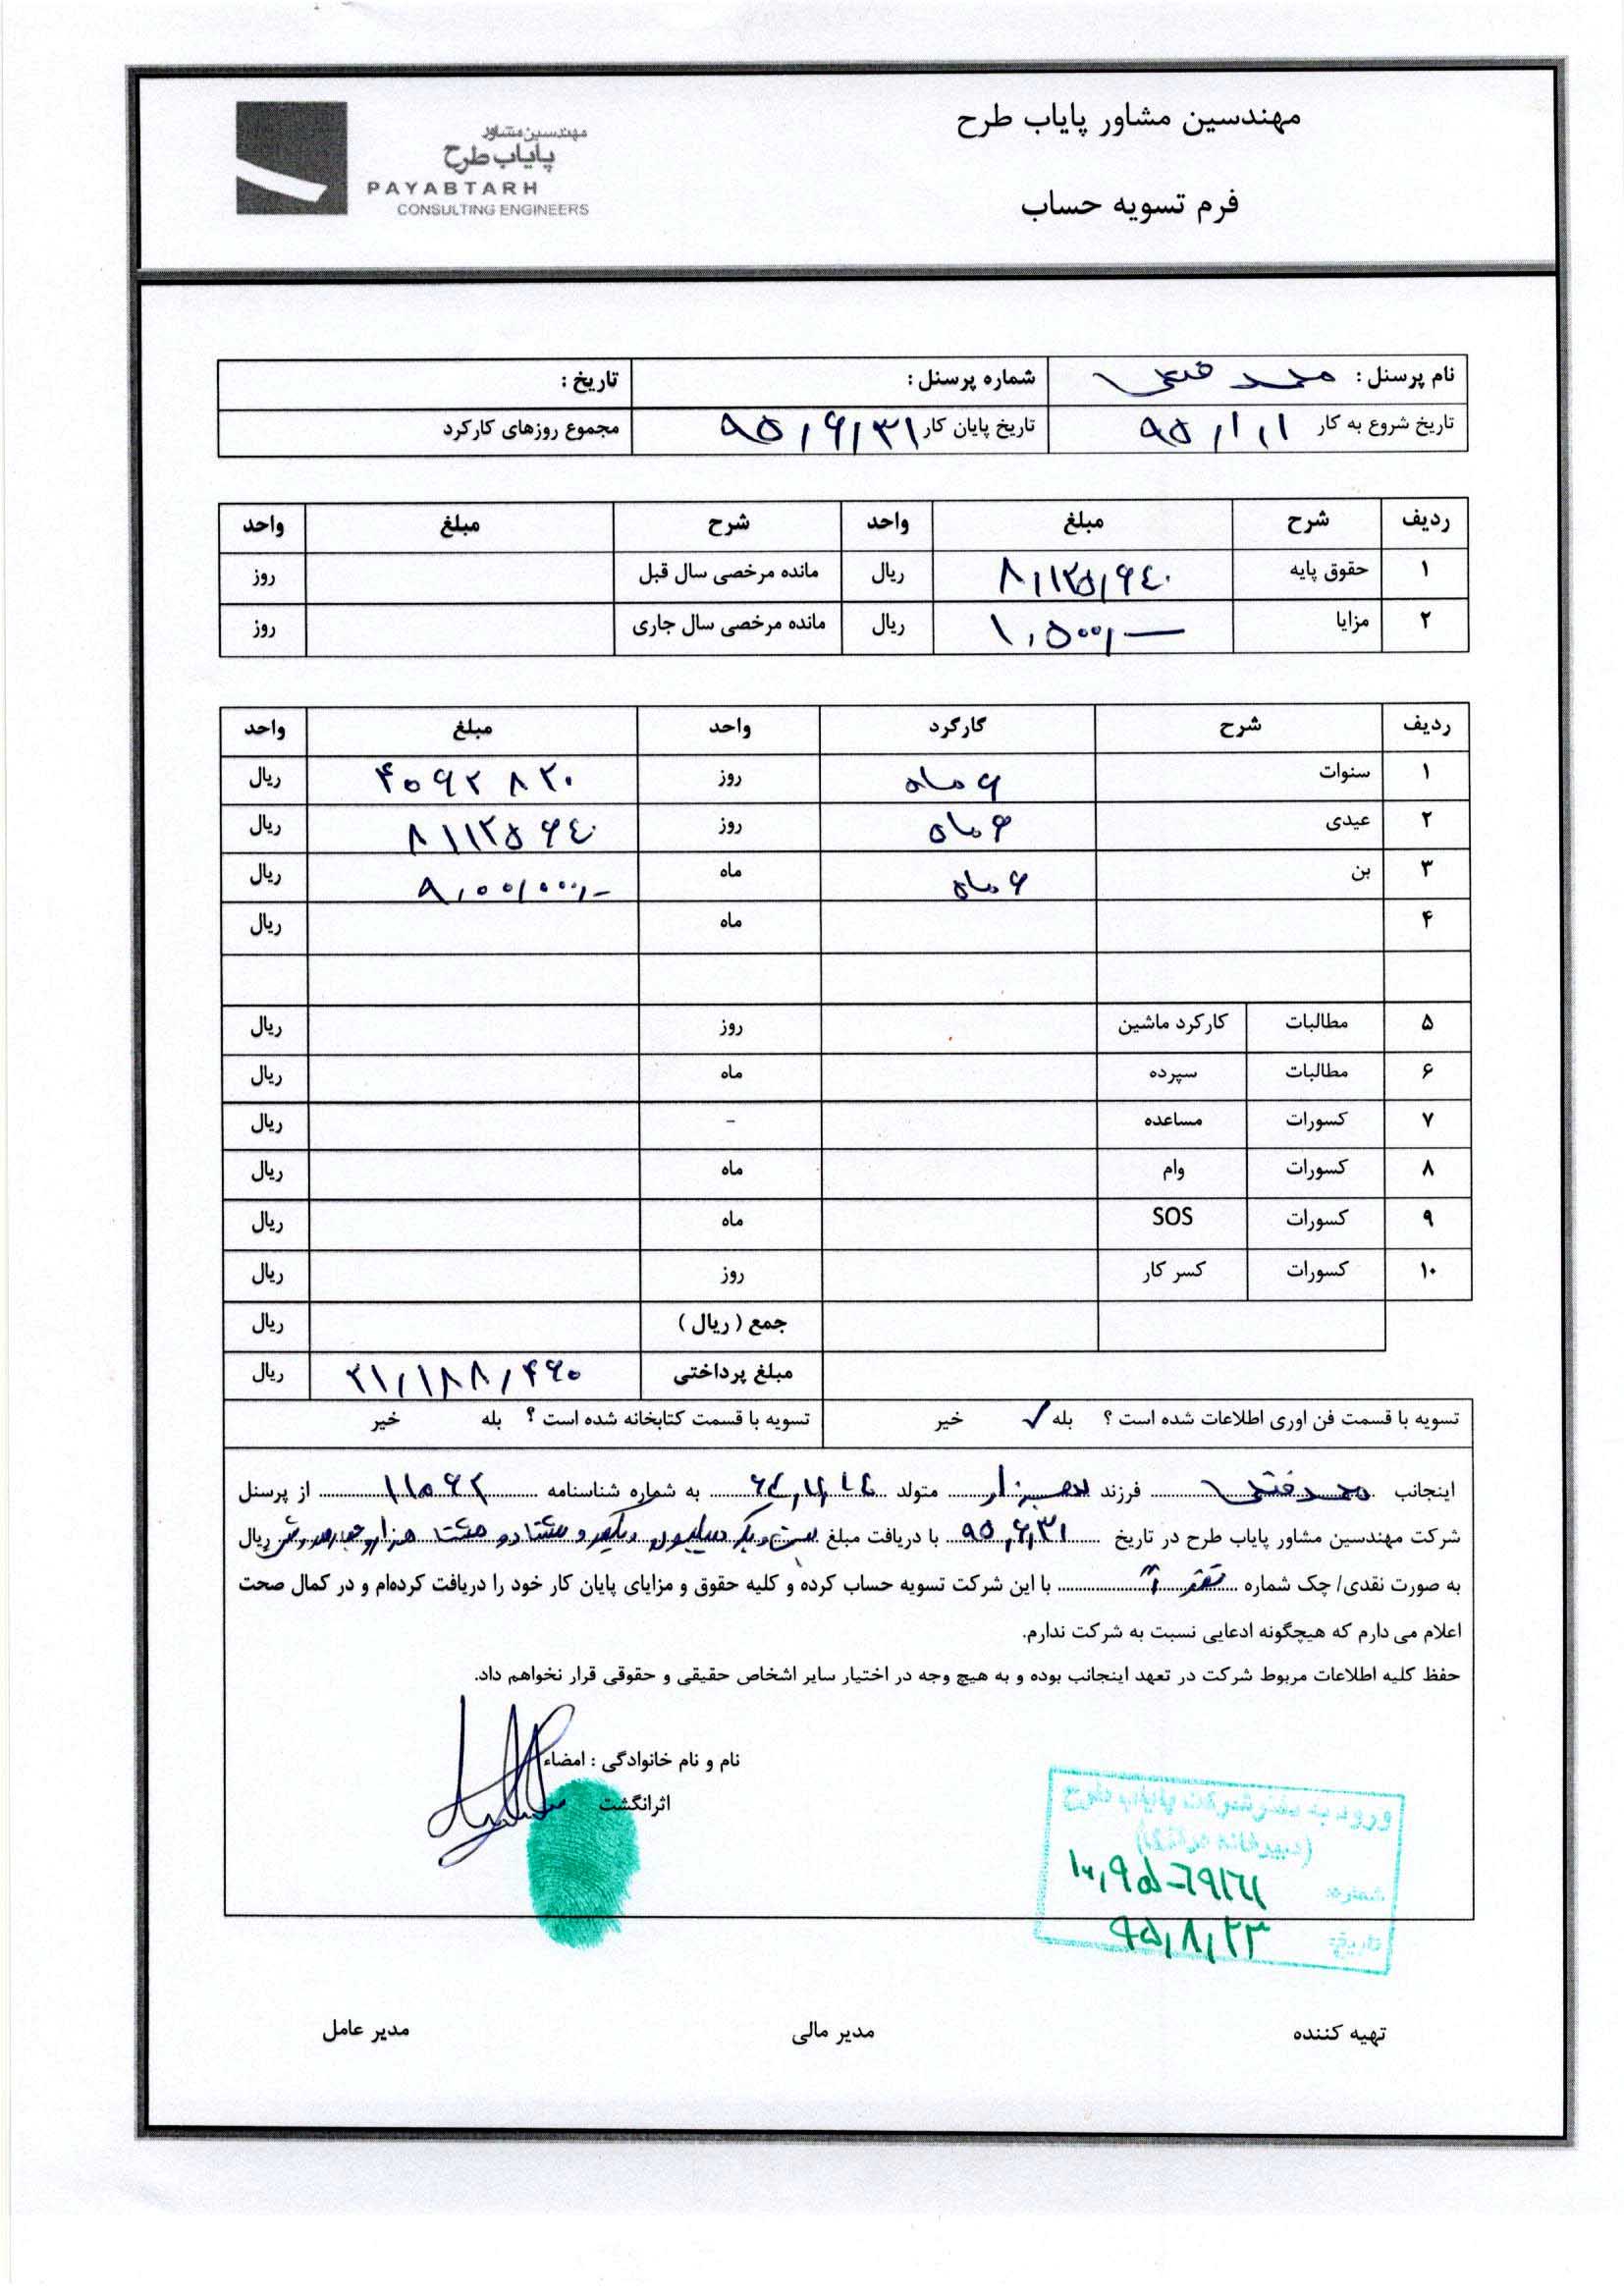 مهندسین مشاور پایاب طرح
مهندسین مشاور
پایاب طرح
PAYABTARH
CONSULTING ENGINEERS
فرم تسویه حساب
نام پرسنل : محمد فتحی شماره پرسنل : تاریخ :
تاریخ شروع به کار ۹۵/۱/۱ تاریخ پایان کار ۹۵/۶/۳۱ مجموع روزهای کارکرد
ردیف شرح مبلغ واحد شرح مبلغ واحد
۱ حقوق پایه ۸,۱۲۵,۶۴۰ ریال مانده مرخصی سال قبل روز
۲ مزایا ۱,۵۰۰,— ریال مانده مرخصی سال جاری روز
ردیف شرح کارکرد واحد مبلغ واحد
۱ سنوات ۶ ماه روز ۴۰۶۲۸۲۰ ریال
۲ عیدی ۶ ماه روز ۸۱۲۵۶۴۰ ریال
۳ بن ۶ ماه ماه ۹,۰۰۰,۰۰۰,- ریال
۴ ماه ریال
۵ مطالبات کارکرد ماشین روز ریال
۶ مطالبات سپرده ماه ریال
۷ کسورات مساعده - ریال
۸ کسورات وام ماه ریال
۹ کسورات SOS ماه ریال
۱۰ کسورات کسر کار روز ریال
جمع ( ریال ) ریال
مبلغ پرداختی ۲۱,۱۸۸,۴۶۰ ریال
تسویه با قسمت فن اوری اطلاعات شده است ؟ بله ✓ خیر تسویه با قسمت کتابخانه شده است ؟ بله خیر
اینجانب محمد فتحی فرزند متولد به شماره شناسنامه ۱۱۰۶۲ از پرسنل
شرکت مهندسین مشاور پایاب طرح در تاریخ ۹۵,۶,۳۱ با دریافت مبلغ بیست و یک میلیون و یکصد و هشتاد و هشت هزار و چهارصد و شصت ریال
به صورت نقدی/ چک شماره با این شرکت تسویه حساب کرده و کلیه حقوق و مزایای پایان کار خود را دریافت کرده‌ام و در کمال صحت
اعلام می دارم که هیچگونه ادعایی نسبت به شرکت ندارم.
حفظ کلیه اطلاعات مربوط شرکت در تعهد اینجانب بوده و به هیچ وجه در اختیار سایر اشخاص حقیقی و حقوقی قرار نخواهم داد.
نام و نام خانوادگی : امضاء
اثرانگشت
ورود به دفتر شرکت پایاب طرح
شماره:
تاریخ: ۹۵,۸,۲۳
تهیه کننده مدیر مالی مدیر عامل